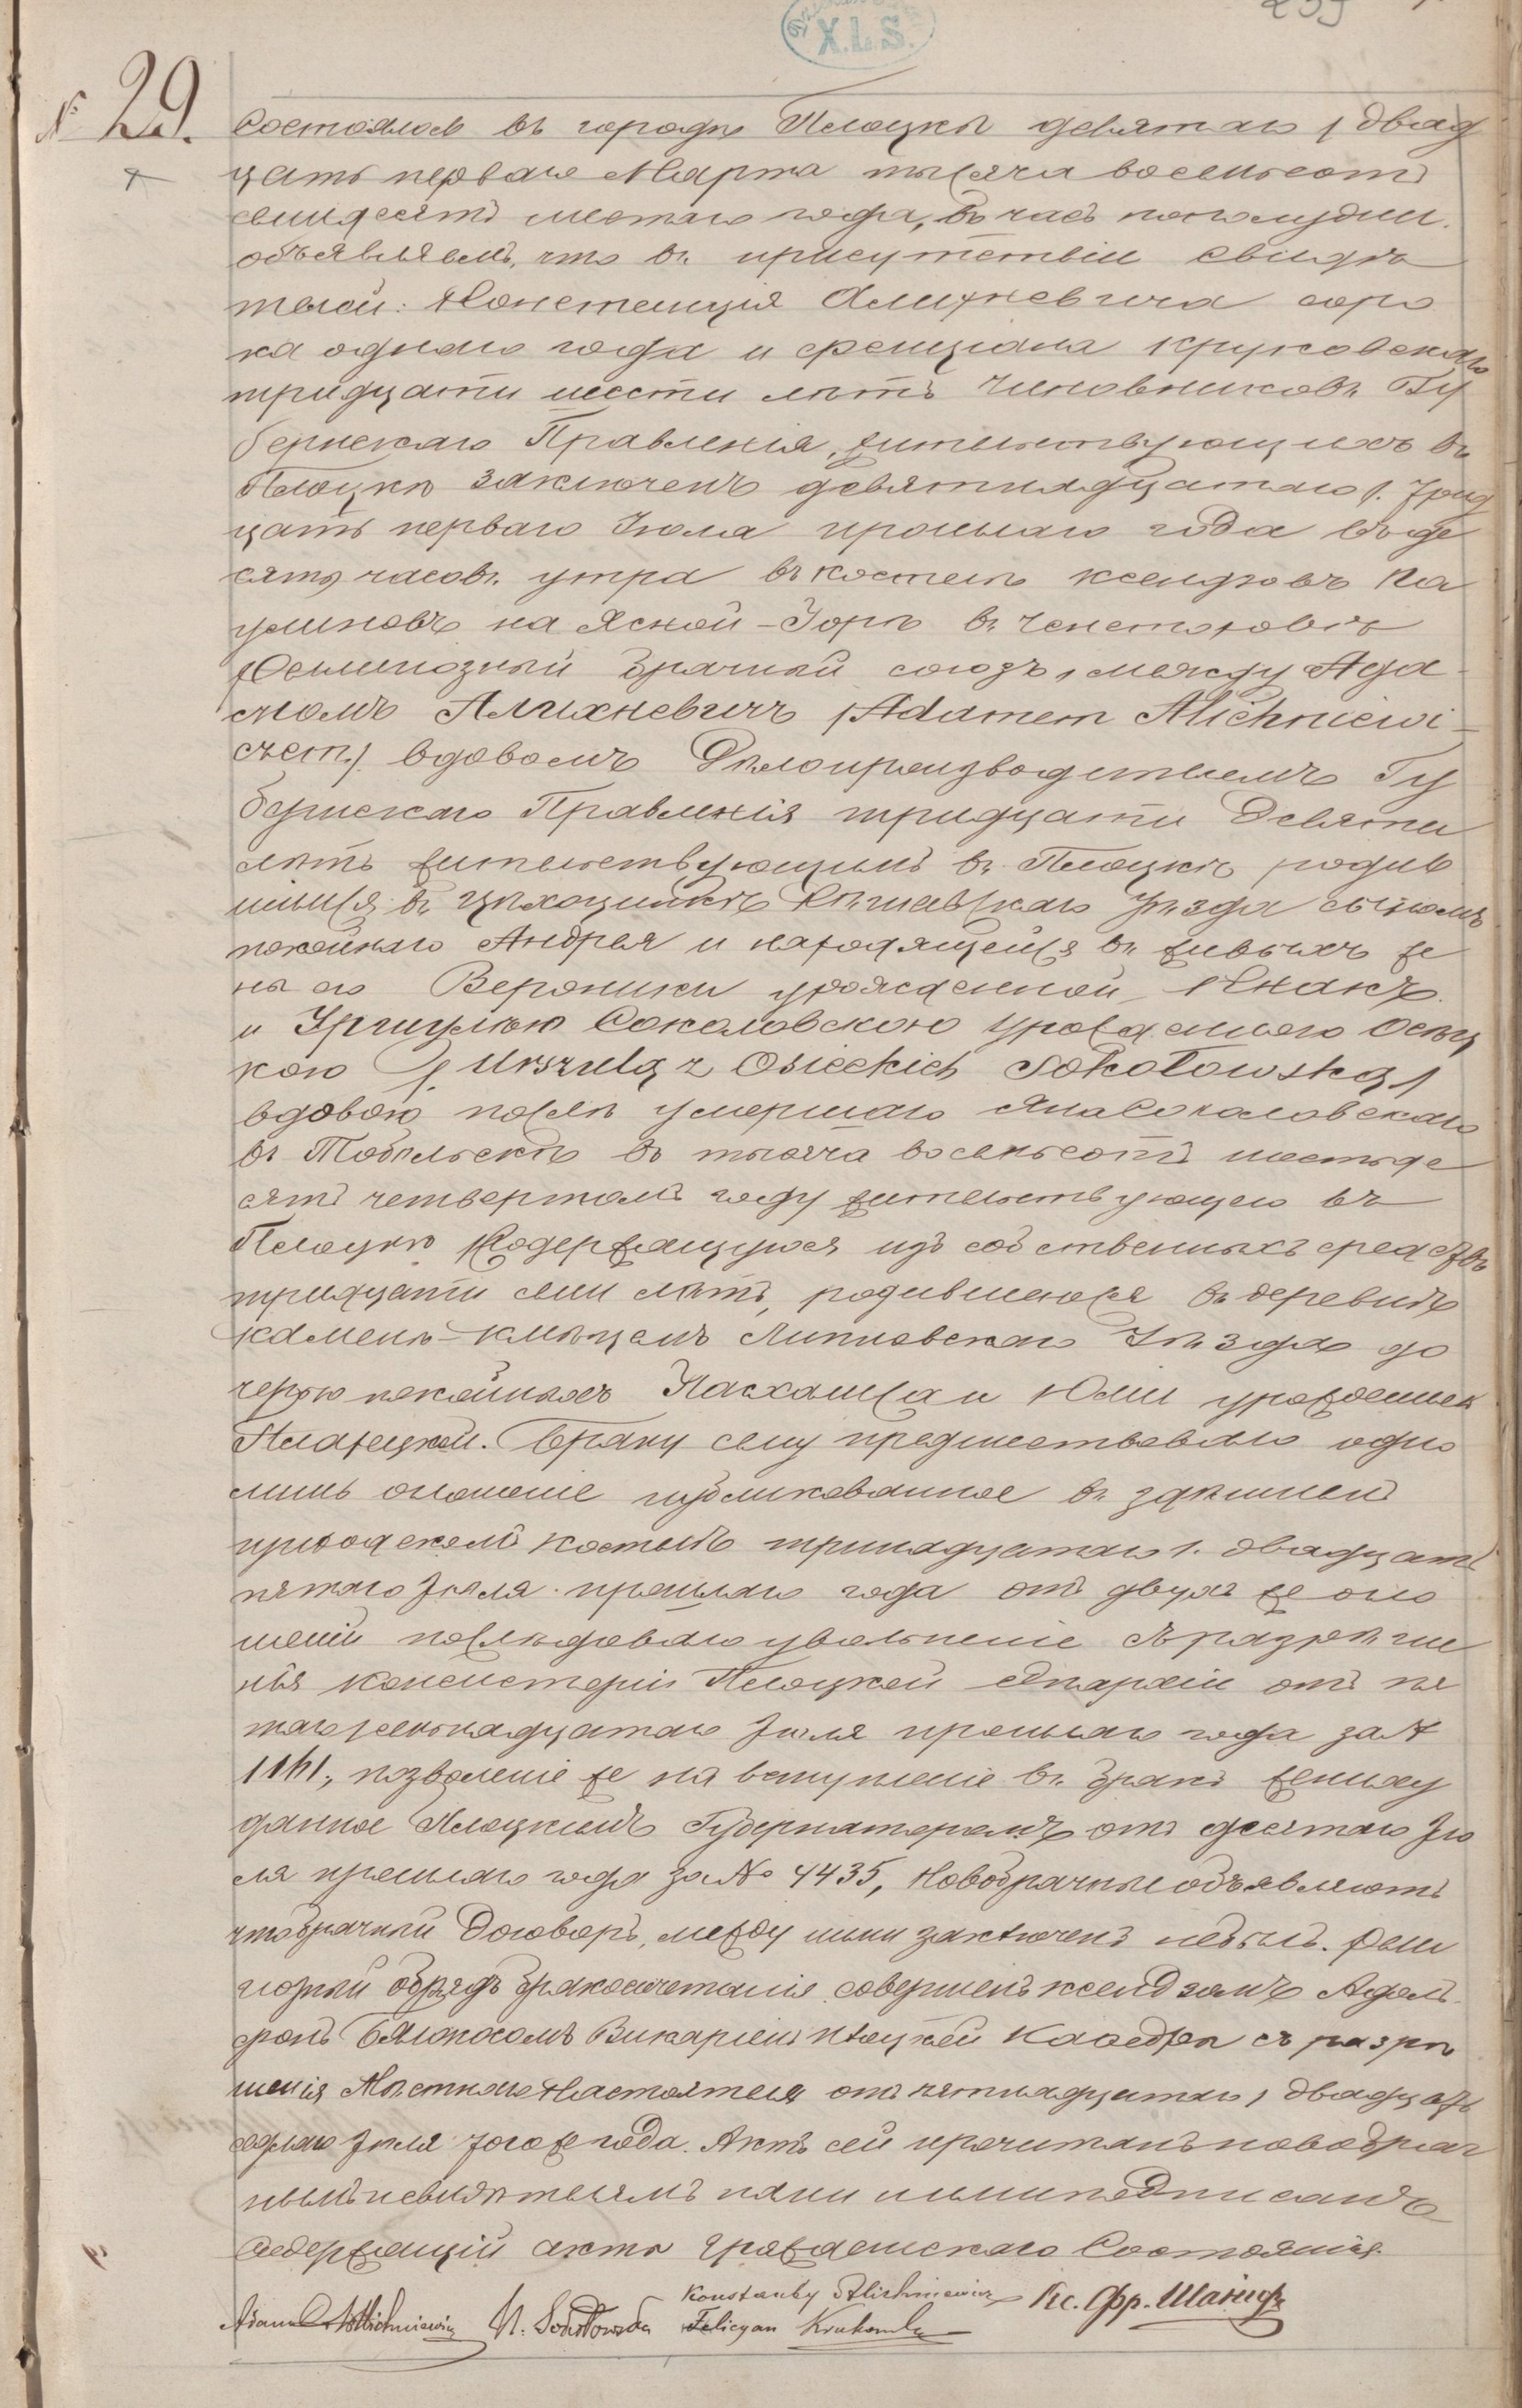 X.L.S.
239
№ 29.
Состоялось въ городѣ Плоцкѣ девятаго / двад
цать перваго Марта тысяча восемьсотъ
семидесятъ шестаго года, въ часъ пополудни.
объявляемъ, что въ присутствіи свидѣ
телей: Констанція Алихневича соро
ка одного года и Фелиціана Круковскаго
тридцати шести лѣтъ Чиновниковъ Гу
бернскаго Правленія, жительствующихъ въ
Плоцкѣ заключенъ девятнадцатаго /. Трид
цать перваго Іюля прошлаго года въ де
сять часовъ утра въ костелѣ ксендзовъ Па
улиновъ на Ясной-Горѣ въ Ченстоховѣ
Религіозный брачный союзъ, между Ада-
момъ Алихневичъ /Adamem Alichniewi-
czem/ вдовомъ Дѣлопроизводителемъ Гу
бернскаго Правленія тридцати Девяти
лѣтъ жительствующимъ въ Плоцкѣ родив
шимся въ Цѣхоцинкѣ уѣзда сыномъ
покойнаго Андрея и находящейся въ живыхъ же
ны его Вероники урожденной
и Уршулею Соколовскою урожденною Осец
кою /Urszulą z Osieckich Sokołowską/
вдовою послѣ умершаго Яна Соколовскаго
въ Тобольскѣ въ тысяча восемьсотъ шестьде
сятъ четвертомъ году жительствующею въ
Плоцкѣ содержащуюся изъ собственныхъ средствъ
тридцати семи лѣтъ, родившеюся въ деревнѣ
Камень-Кмѣцемъ Липновскаго Уѣзда до
черью покойныхъ Пасхалиса и Юліи урожденной
Плажецкой. Браку сему предшествовало одно
лишь оглашеніе публикованное въ здѣшнемъ
приходскомъ костелѣ тринадцатаго /. двадцать
пятаго Іюля прошлаго года отъ двухъ же огла
шеній послѣдовало увольненіе съ разрѣше
нія консисторіи Плоцкой епархіи отъ пя
таго / семьнадцатаго Іюля прошлаго года за №
1161., позволеніе же на вступленіе въ бракъ жениху
данное Плоцкимъ Губернаторомъ отъ десятаго Ію
ля прошлаго года за № 4435, Новобрачные объявляютъ
что брачный Договоръ, между ними заключенъ небылъ. Рели
гіозный обрядъ бракосочетанія совершенъ ксендзомъ Адоль
фомъ Бялокосомъ Викаріемъ Плоцкой Каѳедры съ разрѣ
шенія Мѣстнаго Настоятеля отъ пятнадцатаго / двадцать
седьмаго Іюля того же года. Актъ сей прочитанъ новобрач
нымъ и свидѣтелямъ нами и ними подписанъ
Содержащій акты гражданскаго Состоянія.
Konstanty Alichniewicz Кс. Фр. Шаниор
Adam Alichniewicz U. Sokołowska Felicyan Krukowski